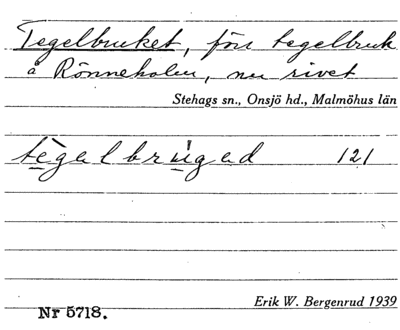 Tegelbruket, förr tegelbruk
å Rönneholm, nu rivet
Stehags sn., Onsjö hd., Malmöhus län
tègalbrúgad 121
Erik W. Bergenrud 1939
Nr 5718.